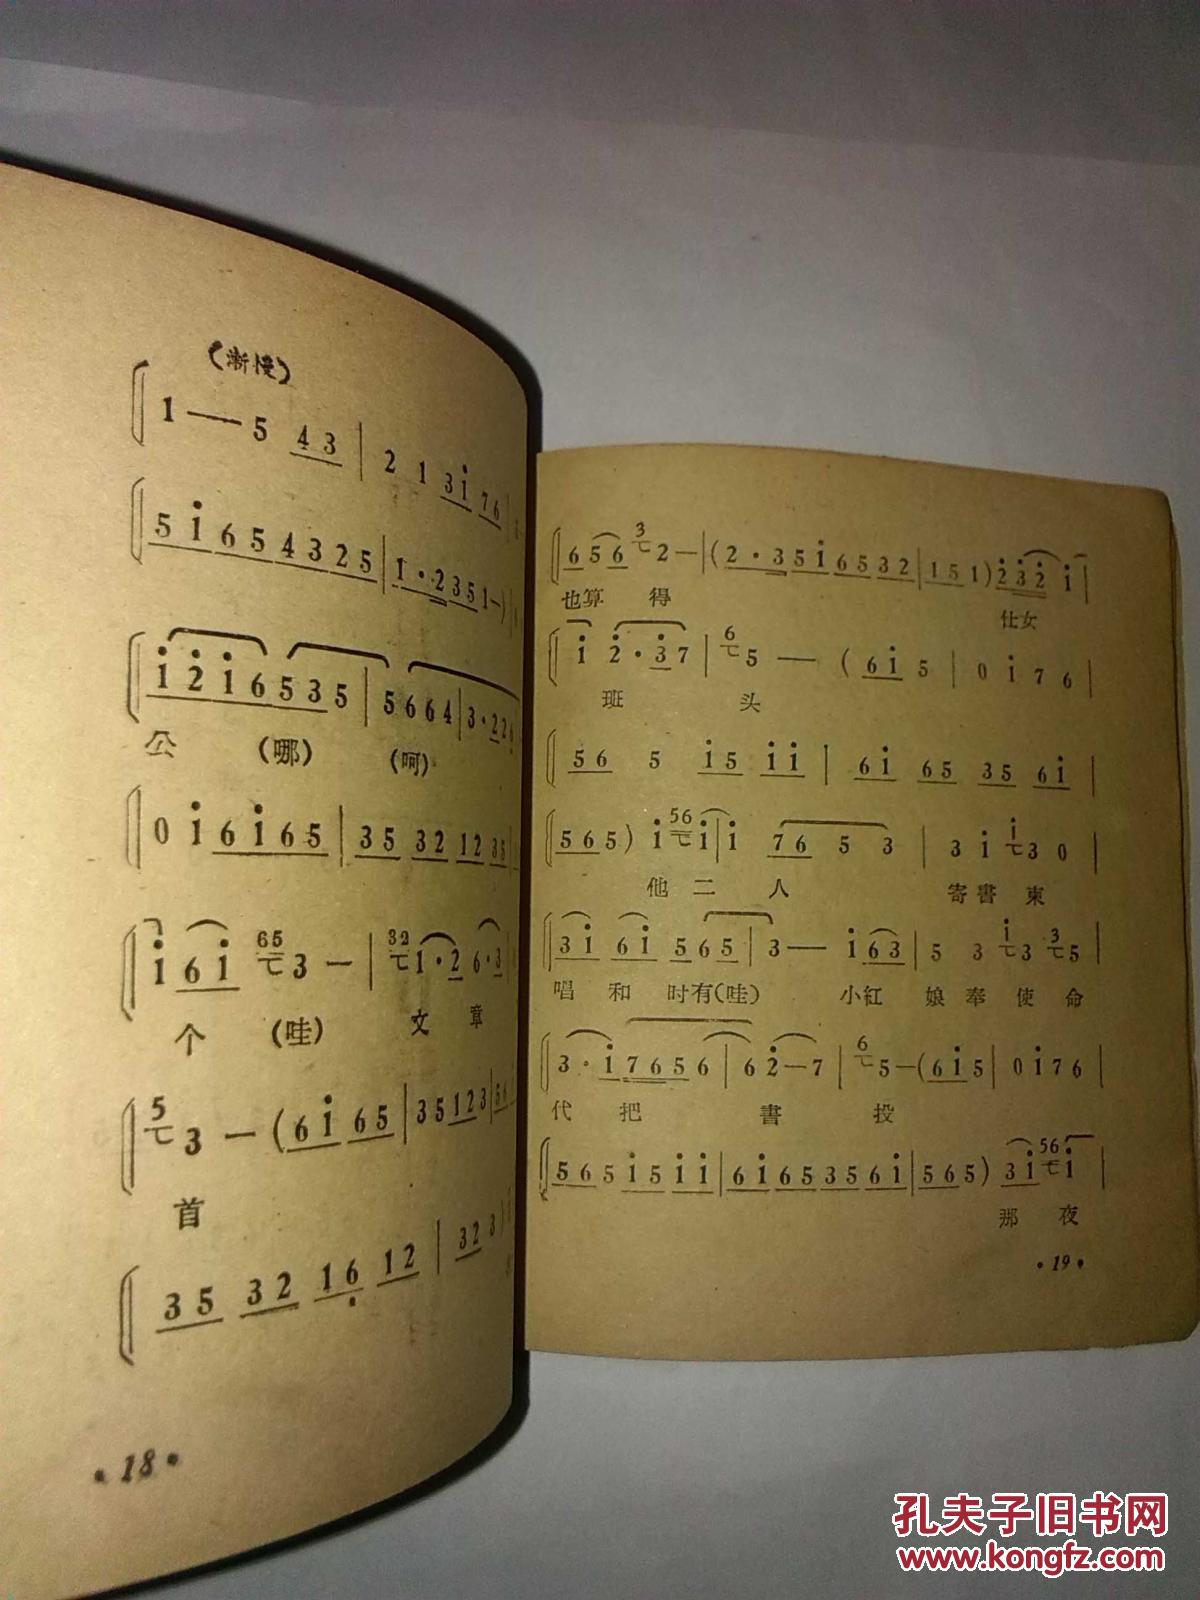 (漸慢)
1 — 5 4 3 | 2 1 3 i 7 6 |
5 i 6 5 4 3 2 5 | 1 · 2 3 5 1 — )
i 2 i 6 5 3 5 | 5 6 6 4 | 3 · 2 2
公 (哪) (呵)
0 i 6 i 6 5 | 3 5 3 2 1 2 3 5
i 6 i 65 3 — | 32 1 · 2 6 · 3
个 (哇) 文 章
5 3 — ( 6 i 6 5 | 3 5 1 2 3 | 5 6
首
3 5 3 2 1 6 1 2 | 3 2 3
· 18 ·
6 5 6 3 2 — | ( 2 · 3 5 i 6 5 3 2 | 1 5 1 ) 2 3 2 i |
也算 得 仕女
i 2 · 3 7 | 6 5 — ( 6 i 5 | 0 i 7 6 |
班 头
5 6 5 i 5 i i | 6 i 6 5 3 5 6 i |
5 6 5 ) i 56 i | i 7 6 5 3 | 3 i i 3 0 |
他 二 人 寄 書 柬
3 i 6 i 5 6 5 | 3 — i 6 3 | 5 3 i 3 3 5 |
唱 和 时有(哇) 小紅 娘 奉 使 命
3 · i 7 6 5 6 | 6 2 — 7 | 6 5 — ( 6 i 5 | 0 i 7 6 |
代 把 書 投
5 6 5 i 5 i i | 6 i 6 5 3 5 6 i | 5 6 5 ) 3 i 56 i |
那 夜
· 19 ·
孔夫子旧书网
www.kongfz.com